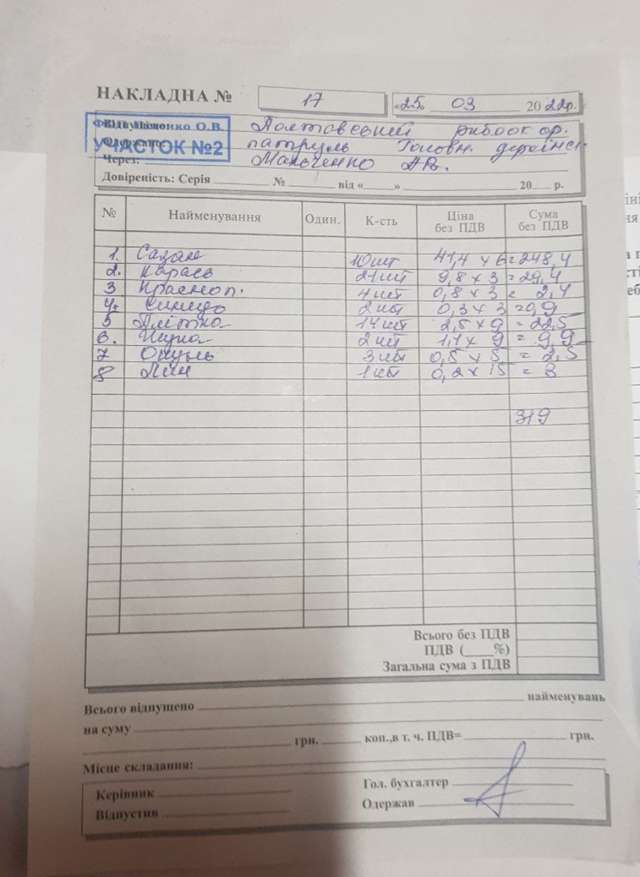 НАКЛАДНА № 17 «25» 03 2022р.
ФОП Іщенко О.В. Полтавський рибоохор.
УЧАСТОК №2 патруль Головн. держінсп
Через:
Довіреність: Серія № від « » 20 р.
№ Найменування Один. К-сть Ціна без ПДВ Сума без ПДВ
1. Сазан 10шт 41,4 х 6 = 248,4
2. Карась 21шт 9,8 х 3 = 29,4
3 Красноп. 4шт 0,8 х 3 = 2,4
4. Синець 2шт 0,3 х 3 = 0,9
5 Плітка 14шт 2,5 х 9 = 22,5
6. Щука 2шт 1,1 х 9 = 9,9
7 Окунь 3шт 0,5 х 5 = 2,5
8 Лин 1шт 0,2 х 15 = 3
319
Всього без ПДВ
ПДВ ( %)
Загальна сума з ПДВ
Всього відпущено найменувань
на суму
грн. коп.,в т. ч. ПДВ= грн.
Місце складання:
Керівник Гол. бухгалтер
Відпустив Одержав